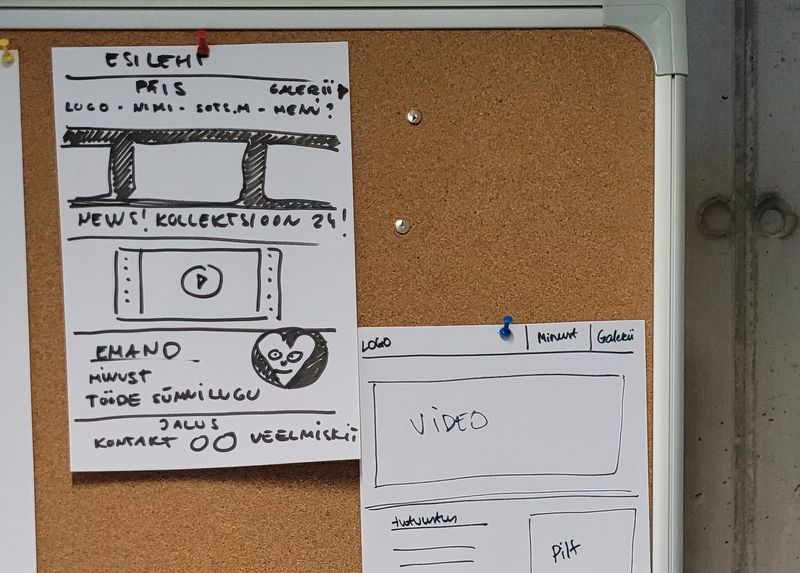 ESILEHT
PÄIS
GALERII
LOGO - NIMI - SOTS.M - MENÜ?
NEWS! KOLLEKTSIOON 24!
EMAND
MINUST
TÖÖDE SÜNNILUGU
JALUS
KONTAKT VEELMISKII
LOGO
Minust
Galerii
VIDEO
tutvustus
Pilt